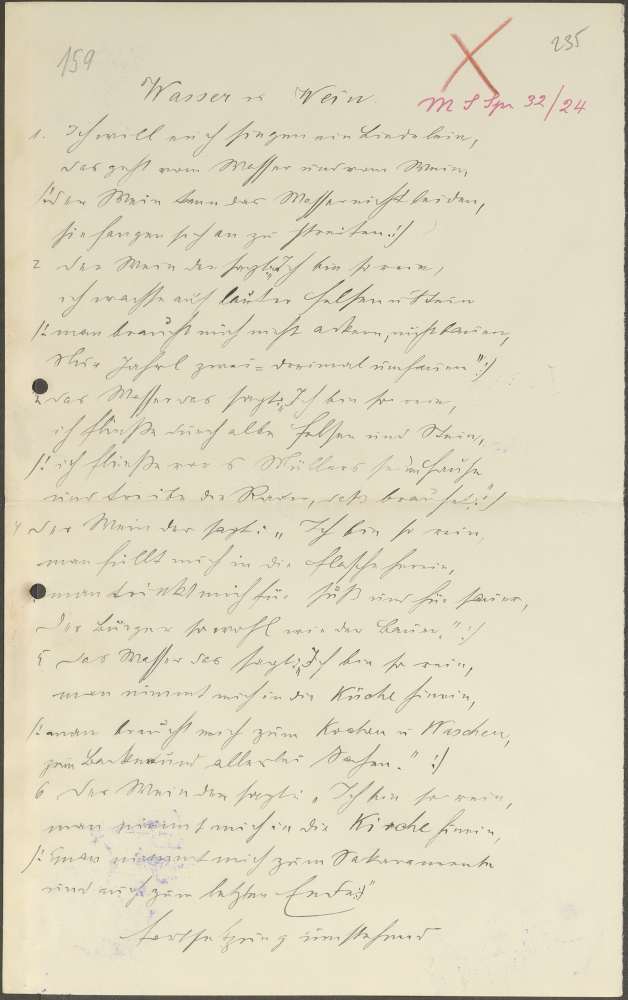 159
235
Wasser u Wein.
M S Spr 32/24
1. Ich will euch singen ein Liedelein,
das geht vom Wasser und vom Wein,
/: der Wein kann das Wasser nicht leiden,
sie fangen sich an zu streiten :/
2 Der Wein der sagt: „Ich bin so rein,
ich wachse auf lauter Felsen u Stein
/: man braucht mich nicht ackern, nicht bauen,
Nur Jahrl zwei = dreimal umhauen" :/
das Wasser das sagt: „Ich bin so rein,
ich fließe durch alle Felsen und Stein,
/: ich fließe vor's Müllers sein Hause
und treibe die Räder, daß brauset." :/
4 Der Wein der sagt: „Ich bin so rein,
man füllt mich in die Flasche herein,
man trinkt mich für süß und für sauer,
Der Bürger sowohl wie der Bauer." :/
5 Das Wasser das sagt: „Ich bin so rein,
man nimmt mich in die Küche hinein,
/: man braucht mich zum Kochen u Waschen,
zum Backen und allerlei Sachen." :/
6 Der Wein der sagt: „Ich bin so rein,
man nimmt mich in die Kirche hinein,
/: man nimmt mich zum Sakaramente
und auch zum letzten Ende :/"
Fortsetzung umstehend